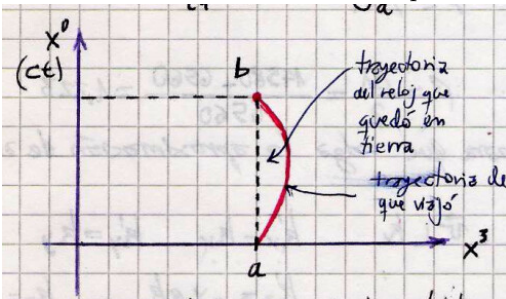 x⁰
(ct)
b
trayectoria
del reloj que
quedó en
tierra
trayectoria del
que viajó
a
x³